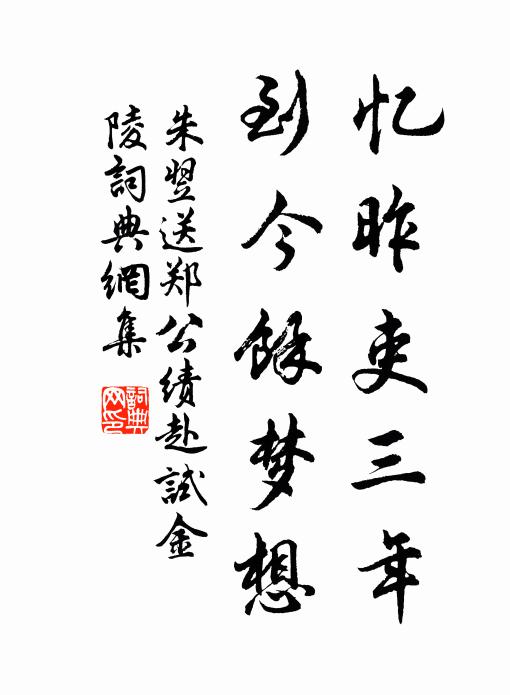 忆昨吏三年
到今餘梦想
朱翌送郑公绩赴試金
陵詞典網集
詞典
网印